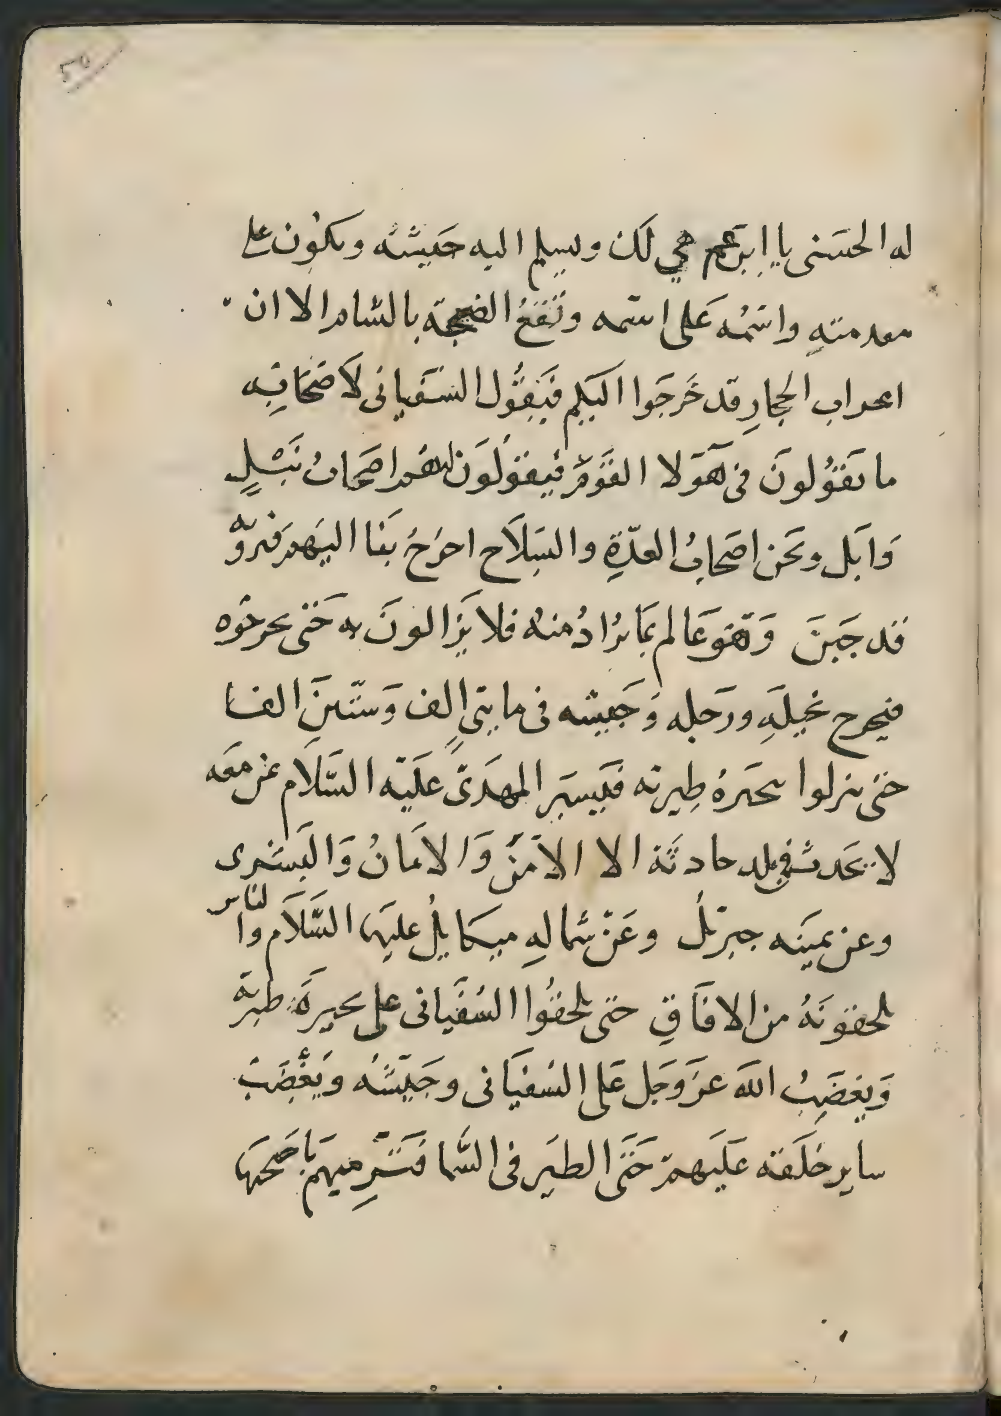 ٥٥
له الحسنى يا ابن عم هي لك ويسلم اليه جيشه ويكون على
مقدمته واسمه على اسمه وتقع الضجة بالشام الا ان
اعراب الحجاز قد خرجوا اليكم فيقول السفياني لاصحابه
ما تقولون في هولا القوم فيقولون هم اصحاب نبل
وابل ونحن اصحاب العدة والسلاح اخرج بنا اليهم فيروه
قد جبن وهو عالم بما يراد منه فلا يزالون به حتى يخرجوه
فيخرج بخيله ورجله وجيشه في مايتي الف وستين الفا
حتى ينزلوا بحيرة طبرية فيسير المهدي عليه السلام بمن معه
لا يحدث في بلد حادثة الا الامن والامان والبشرى
وعن يمينه جبريل وعن شماله ميكاييل عليهما السلام والناس
يلحقونه من الافاق حتى يلحقوا السفياني على بحيرة طبرية
ويغضب الله عز وجل على السفياني وجيشه ويغضب
ساير خلقه عليهم حتى الطير في السما فترميهم باجنحتها